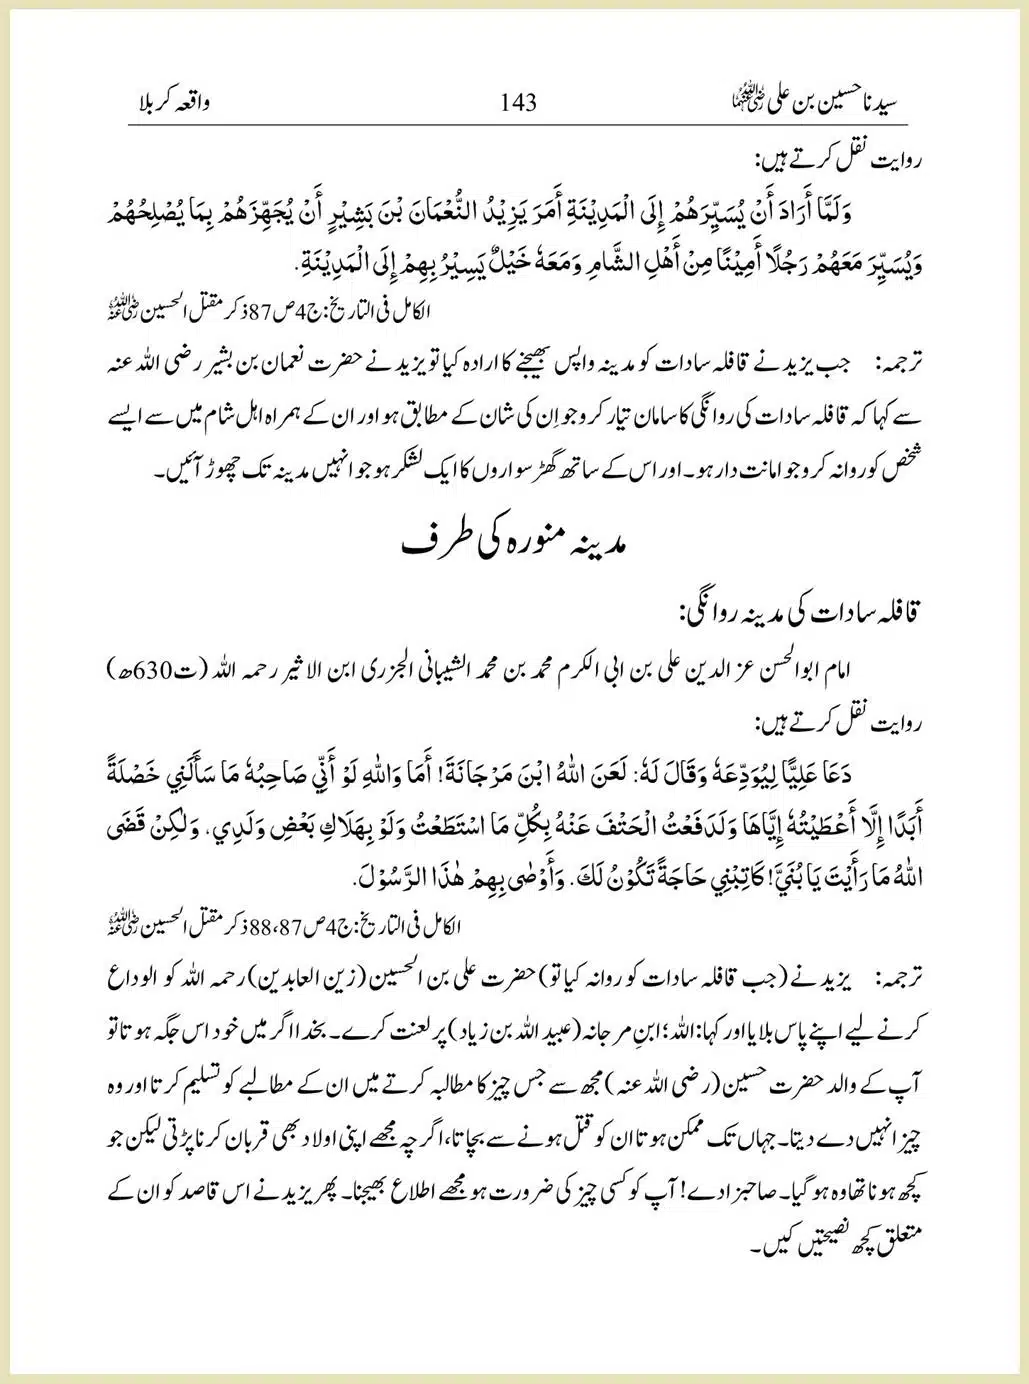 سیدنا حسین بن علی رضی اللہ عنہما 143 واقعہ کربلا
روایت نقل کرتے ہیں:
وَلَمَّا أَرَادَ أَنْ يُسَيِّرَهُمْ إِلَى الْمَدِيْنَةِ أَمَرَ يَزِيْدُ النُّعْمَانَ بْنَ بَشِيْرٍ أَنْ يُجَهِّزَهُمْ بِمَا يُصْلِحُهُمْ
وَيُسَيِّرَ مَعَهُمْ رَجُلًا أَمِيْنًا مِنْ أَهْلِ الشَّامِ وَمَعَهٗ خَيْلٌ يَسِيْرُ بِهِمْ إِلَى الْمَدِيْنَةِ.
الکامل فی التاریخ: ج4 ص87 ذکر مقتل الحسین رضی اللہ عنہ
ترجمہ: جب یزید نے قافلہ سادات کو مدینہ واپس بھیجنے کا ارادہ کیا تو یزید نے حضرت نعمان بن بشیر رضی اللہ عنہ
سے کہا کہ قافلہ سادات کی روانگی کا سامان تیار کرو جو اِن کی شان کے مطابق ہو اور ان کے ہمراہ اہل شام میں سے ایسے
شخص کو روانہ کرو جو امانت دار ہو۔ اور اس کے ساتھ گھڑ سواروں کا ایک لشکر ہو جو انہیں مدینہ تک چھوڑ آئیں۔
مدینہ منورہ کی طرف
قافلہ سادات کی مدینہ روانگی:
امام ابوالحسن عز الدین علی بن ابی الکرم محمد بن محمد الشیبانی الجزری ابن الاثیر رحمہ اللہ (ت630ھ)
روایت نقل کرتے ہیں:
دَعَا عَلِيًّا لِيُوَدِّعَهٗ وَقَالَ لَهٗ: لَعَنَ اللهُ ابْنَ مَرْجَانَةَ! أَمَا وَاللهِ لَوْ أَنِّي صَاحِبُهٗ مَا سَأَلَنِي خَصْلَةً
أَبَدًا إِلَّا أَعْطَيْتُهٗ إِيَّاهَا وَلَدَفَعْتُ الْحَتْفَ عَنْهُ بِكُلِّ مَا اسْتَطَعْتُ وَلَوْ بِهَلَاكِ بَعْضِ وَلَدِي، وَلٰكِنْ قَضَى
اللهُ مَا رَأَيْتَ يَا بُنَيَّ! كَاتِبْنِي حَاجَةً تَكُوْنُ لَكَ. وَأَوْصٰى بِهِمْ هٰذَا الرَّسُوْلَ.
الکامل فی التاریخ: ج4 ص87، 88 ذکر مقتل الحسین رضی اللہ عنہ
ترجمہ: یزید نے (جب قافلہ سادات کو روانہ کیا تو) حضرت علی بن الحسین (زین العابدین) رحمہ اللہ کو الوداع
کرنے لیے اپنے پاس بلایا اور کہا: اللہ؛ ابنِ مرجانہ (عبید اللہ بن زیاد) پر لعنت کرے۔ بخدا اگر میں خود اس جگہ ہوتا تو
آپ کے والد حضرت حسین (رضی اللہ عنہ) مجھ سے جس چیز کا مطالبہ کرتے میں ان کے مطالبے کو تسلیم کرتا اور وہ
چیز انہیں دے دیتا۔ جہاں تک ممکن ہوتا ان کو قتل ہونے سے بچاتا، اگرچہ مجھے اپنی اولاد بھی قربان کرنا پڑتی لیکن جو
کچھ ہونا تھا وہ ہو گیا۔ صاحبزادے! آپ کو کسی چیز کی ضرورت ہو مجھے اطلاع بھیجنا۔ پھر یزید نے اس قاصد کو ان کے
متعلق کچھ نصیحتیں کیں۔